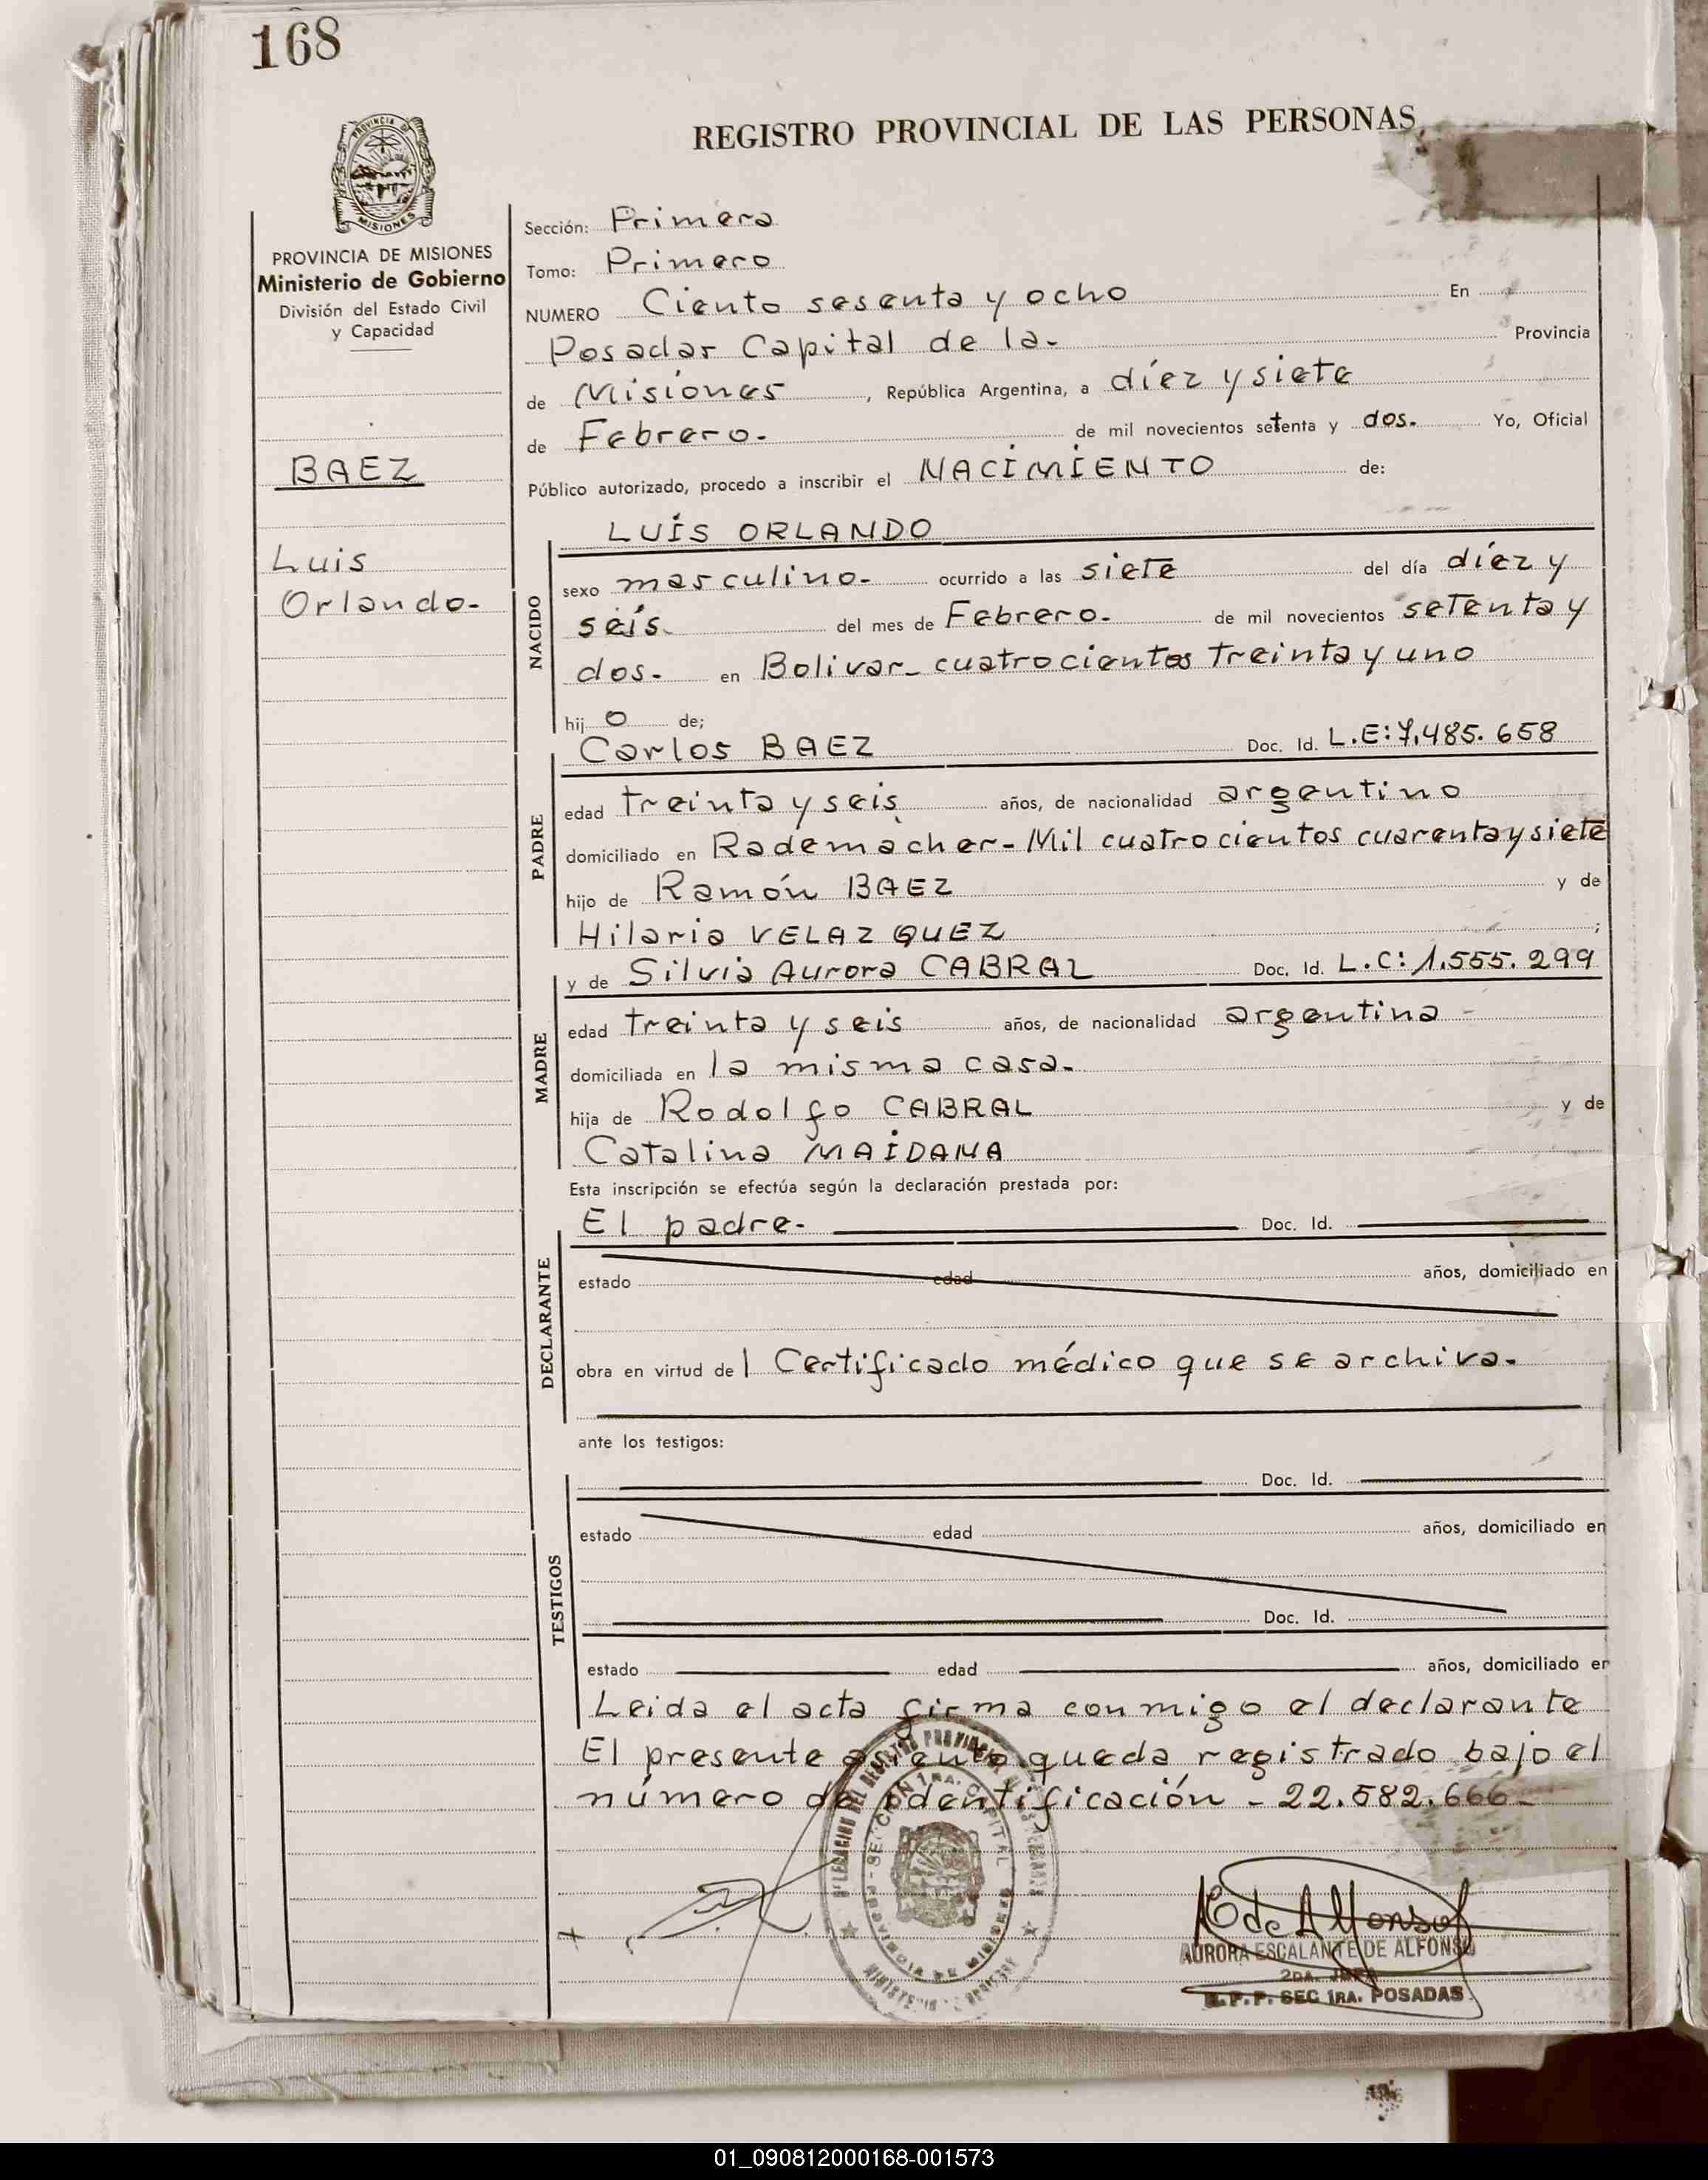 168
REGISTRO PROVINCIAL DE LAS PERSONAS
PROVINCIA DE
MISIONES
PROVINCIA DE MISIONES
Ministerio de Gobierno
División del Estado Civil
y Capacidad
BAEZ
Luis
Orlando-
Sección: Primera
Tomo: Primero
NUMERO Ciento sesenta y ocho En
Posadas Capital de la- Provincia
de Misiones, República Argentina, a díez y siete
de Febrero- de mil novecientos setenta y dos. Yo, Oficial
Público autorizado, procedo a inscribir el NACIMIENTO de:
NACIDO
LUIS ORLANDO
sexo masculino- ocurrido a las siete del día díez y
seis del mes de Febrero- de mil novecientos setenta y
dos- en Bolivar- cuatrocientos treinta y uno
hij o de;
PADRE
Carlos BAEZ Doc. Id. L.E: 7.485.658
edad treinta y seis años, de nacionalidad argentino
domiciliado en Rademacher- Mil cuatrocientos cuarenta y siete
hijo de Ramón BAEZ y de
Hilaria VELAZQUEZ ;
MADRE
y de Silvia Aurora CABRAL Doc. Id. L.C: 1.555.299
edad treinta y seis años, de nacionalidad argentina -
domiciliada en la misma casa-
hija de Rodolfo CABRAL y de
Catalina MAIDANA
Esta inscripción se efectúa según la declaración prestada por:
DECLARANTE
El padre- Doc. Id.
estado edad años, domiciliado en
obra en virtud de l Certificado médico que se archiva-
ante los testigos:
TESTIGOS
Doc. Id.
estado edad años, domiciliado en
Doc. Id.
estado edad años, domiciliado en
Leida el acta firma conmigo el declarante
El presente asiento queda registrado bajo el
número de identificación - 22.582.666-
SECCION 1RA. CAPITAL
PROVINCIA DE MISIONES
AURORA ESCALANTE DE ALFONSO
2DA. JEFA
R.P.P. SEC 1RA. POSADAS
01_090812000168-001573